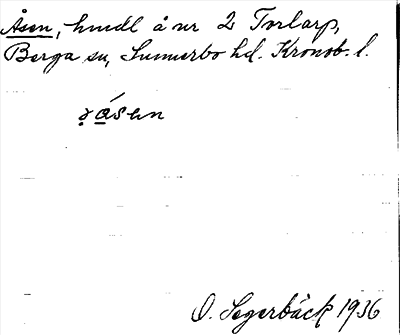 Åsen, hmdl å nr 2 Torlarp,
Berga sn, Sunnerbo hd. Kronob. l.
O. Segerbäck 1936